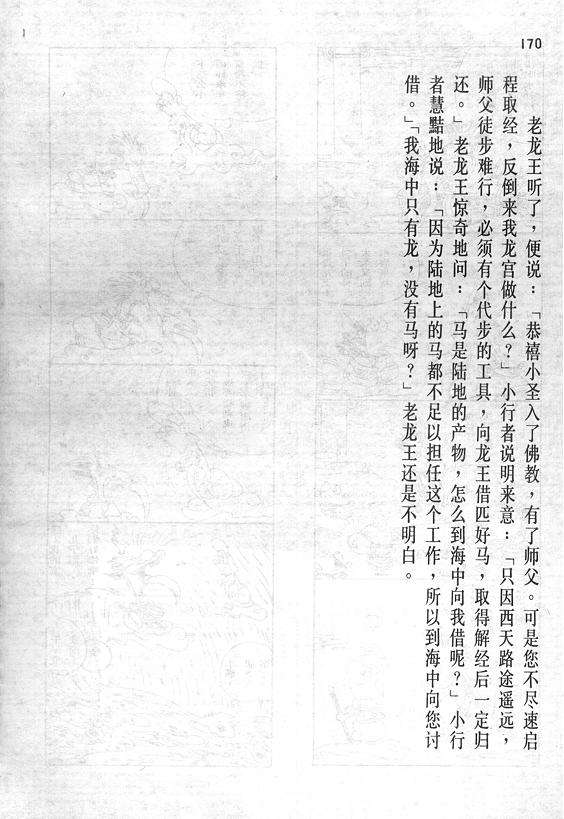 170
老龙王听了，便说：「恭禧小圣入了佛教，有了师父。可是您不尽速启
程取经，反倒来我龙宫做什么？」小行者说明来意：「只因西天路途遥远，
师父徒步难行，必须有个代步的工具，向龙王借匹好马，取得解经后一定归
还。」老龙王惊奇地问：「马是陆地的产物，怎么到海中向我借呢？」小行
者慧黠地说：「因为陆地上的马都不足以担任这个工作，所以到海中向您讨
借。」「我海中只有龙，没有马呀？」老龙王还是不明白。